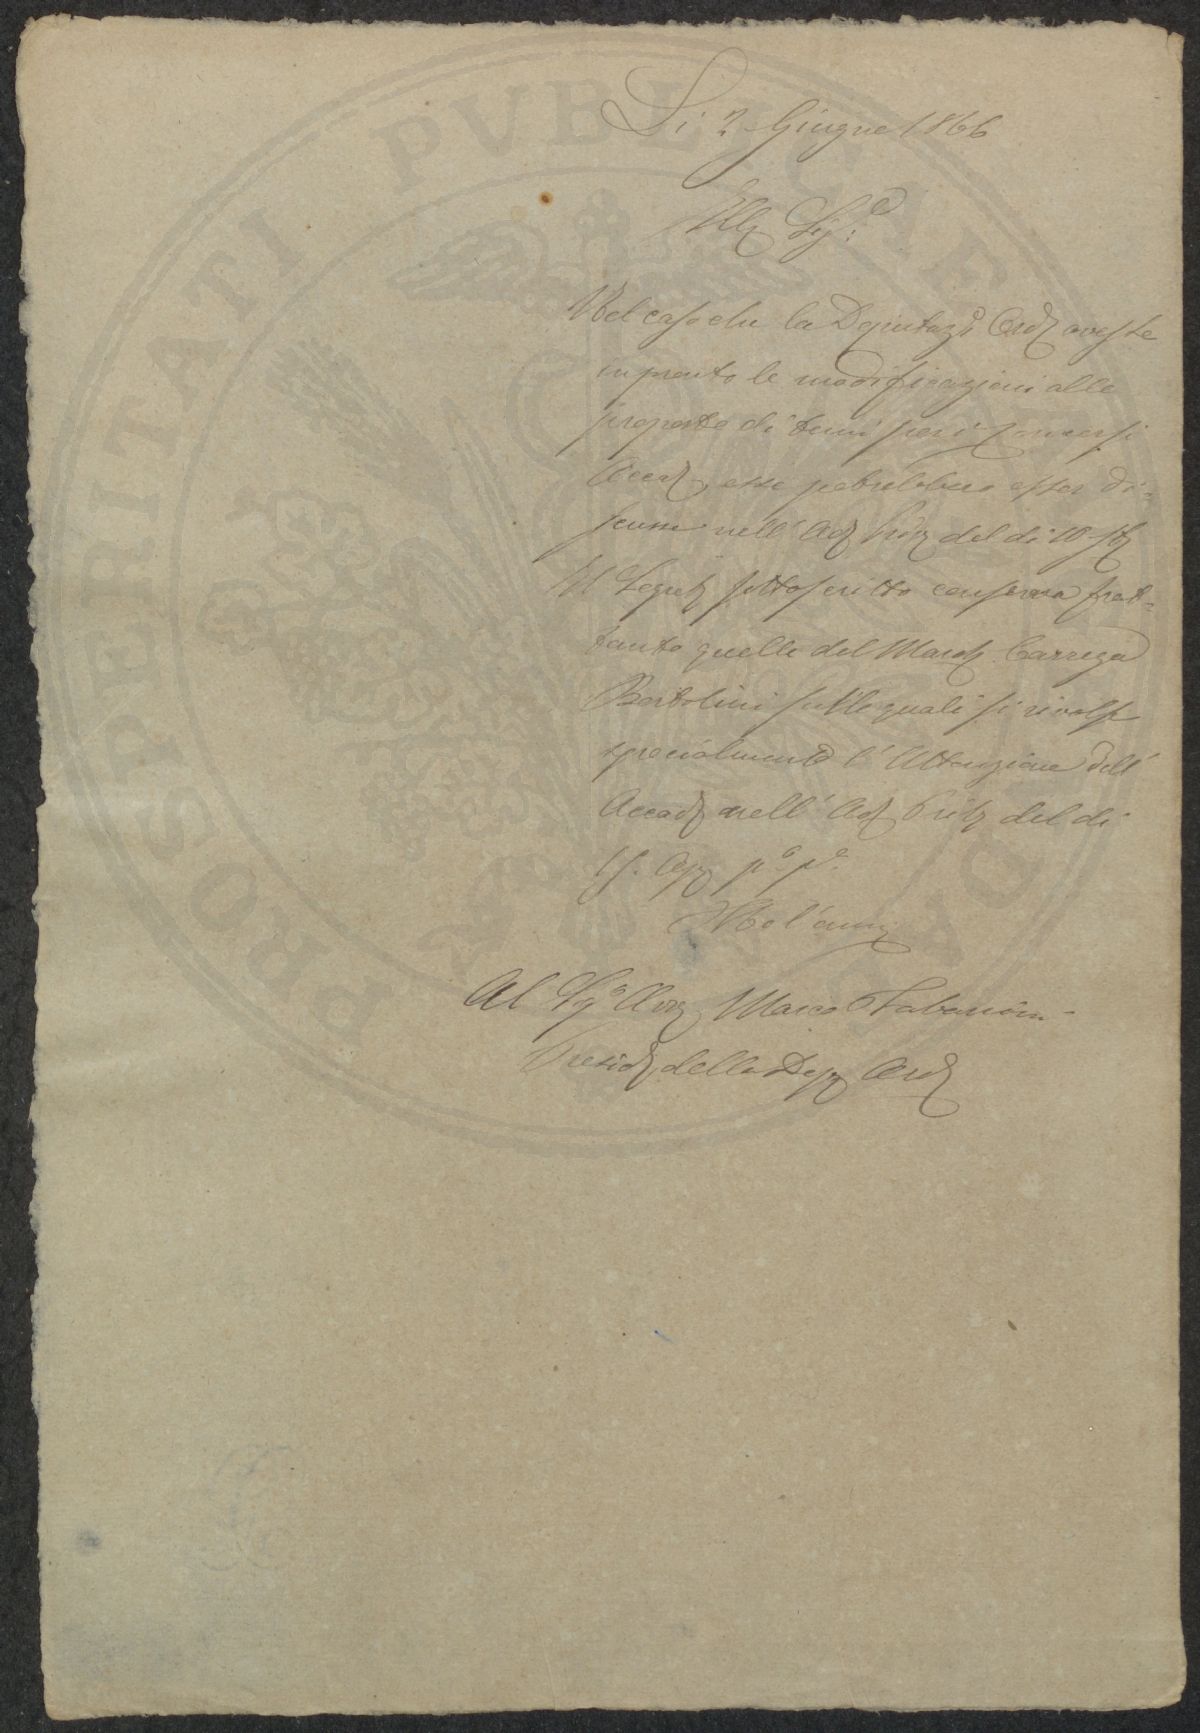 PROSPERITATI PVBLICAE
Li 2 Giugno 1866
Ill Sig:e
Nel caso che la Deputaz Ord avesse
in pronto le modificazioni alle
proposte di temi per i Concorsi
Accad esse potrebbero esser di=
scusse nell' Ad del di 10
Il Segret sottoscritto conserva frat=
tanto quelle del March Carrega
Bertolini sulle quali si rivolse
specialmente l'Attenzione dell'
Accad nell' Ad del di
Al Sig Avv Marco Tabarrini
Presid della Dep Ord